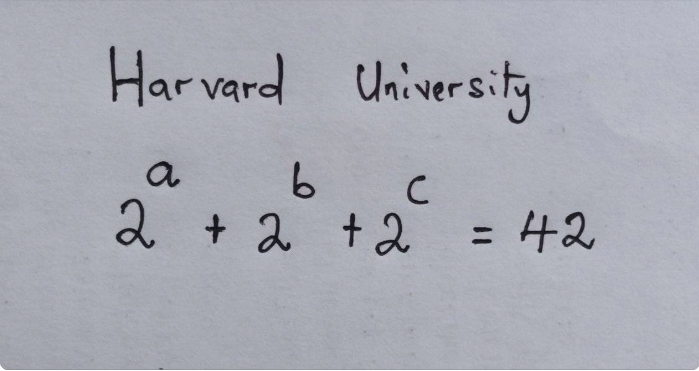 Harvard University
2^a + 2^b + 2^c = 42